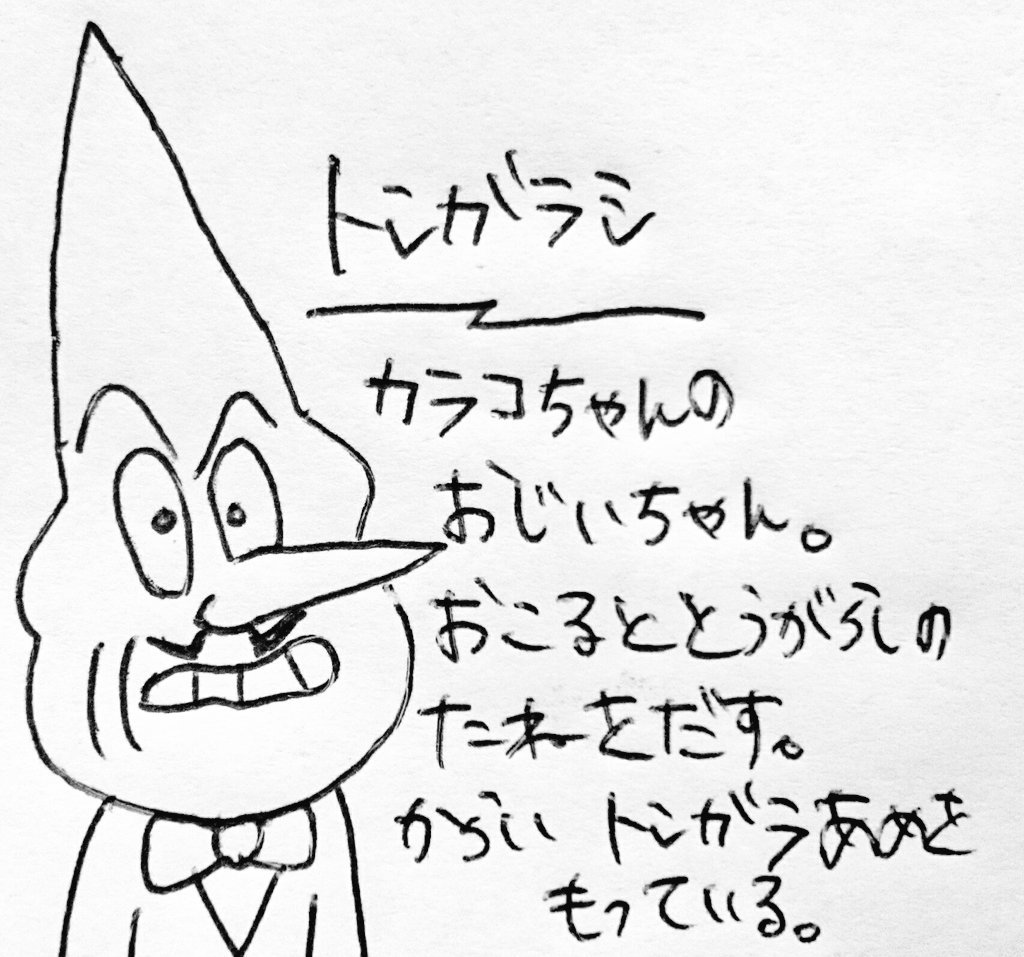 トンガラシ
カラコちゃんの
おじいちゃん。
おこるととうがらしの
たねをだす。
からい トンガラあめを
もっている。